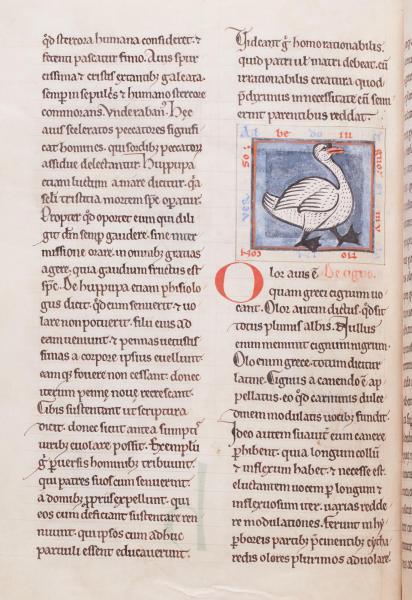 q̄d stercora humana consideret. &
fetenti pascatur fimo. Auis spur
cissima & cristis extantib; galeata.
semp in sepulcris & humano stercore
commorans. Vnde rabanꝰ. Hec
auis sceleratos peccatores signifi
cat homines. qui sordib; peccatoꝝ
assidue delectantur. Huppupa
etiam luctum amare dicitur. q̄a
seculi tristitia mortem sp̄c operatur.
Propter qd̄ oportet eum qui dili
git dn̄m semp gaudere. sine inter
missione orare. in omnib; gratias
agere. quia gaudium fructus est
sp̄c. De huppupa etiam phisiolo
gus dicit. q̄d cum senuerit. & uo
lare non potuerit. filii eius ad
eam ueniunt. & pennas uetustis
simas a corpore ipsius euellunt.
eamq; fouere non cessant. donec
iterum penne noue recrescant.
Cibis sustentant ut scriptura
dicit. donec sicut antea sumptis
uirib; euolare possit. Exemplum
g̊ puersis hominib; tribuunt.
qui patres suos cum senuerint
a domib; pprus expellunt. qui
eos cum deficiant sustentare ren
nuunt. qui ipsos cum adhuc
paruuli essent educauerunt.
Videant g̊ homo rationabilis.
quid patri uel matri debeat. cū
irrationabilis creatura quod
p̄diximus in necessitate cū sen
erint parentibus reddat.
Olor auis ē De cigno.
quam greci cignum uo
cant. Olor autem dictus. qd̄ sit
totus plumis albis. Nullus
enim meminit cignum nigrum.
Olo enim grece. totum dicitur
latine. Cignus a canendo ē ap
pellatus. eo qd̄ carminis dulce
dinem modulatis uocib; fundit.
Ideo autem suauit̄ eum canere
phibent. quia longum collū
& inflexum habet. & necesse est
eluctantem uocem p longum &
inflexuosum iter. uarias redde
re modulationes. Ferunt in hy
pboreis partib; p̄cinentib; cytha
redis olores plurimos aduolare.